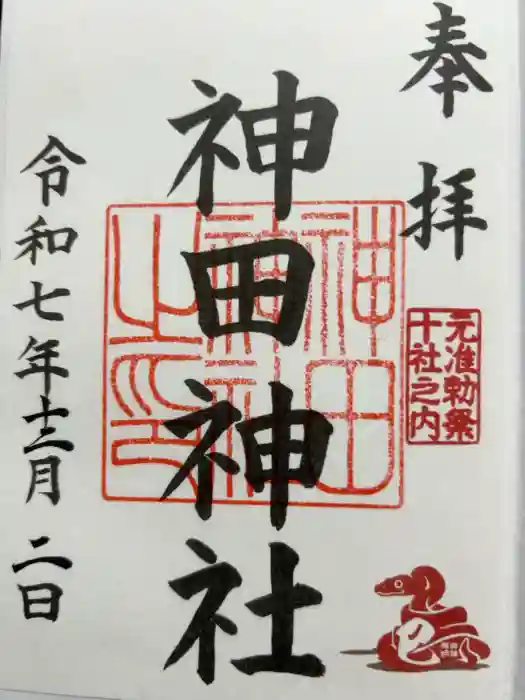 奉拝
元准勅祭
十社之内
神田神社
神田
神社
之印
令和七年十二月二日
巳